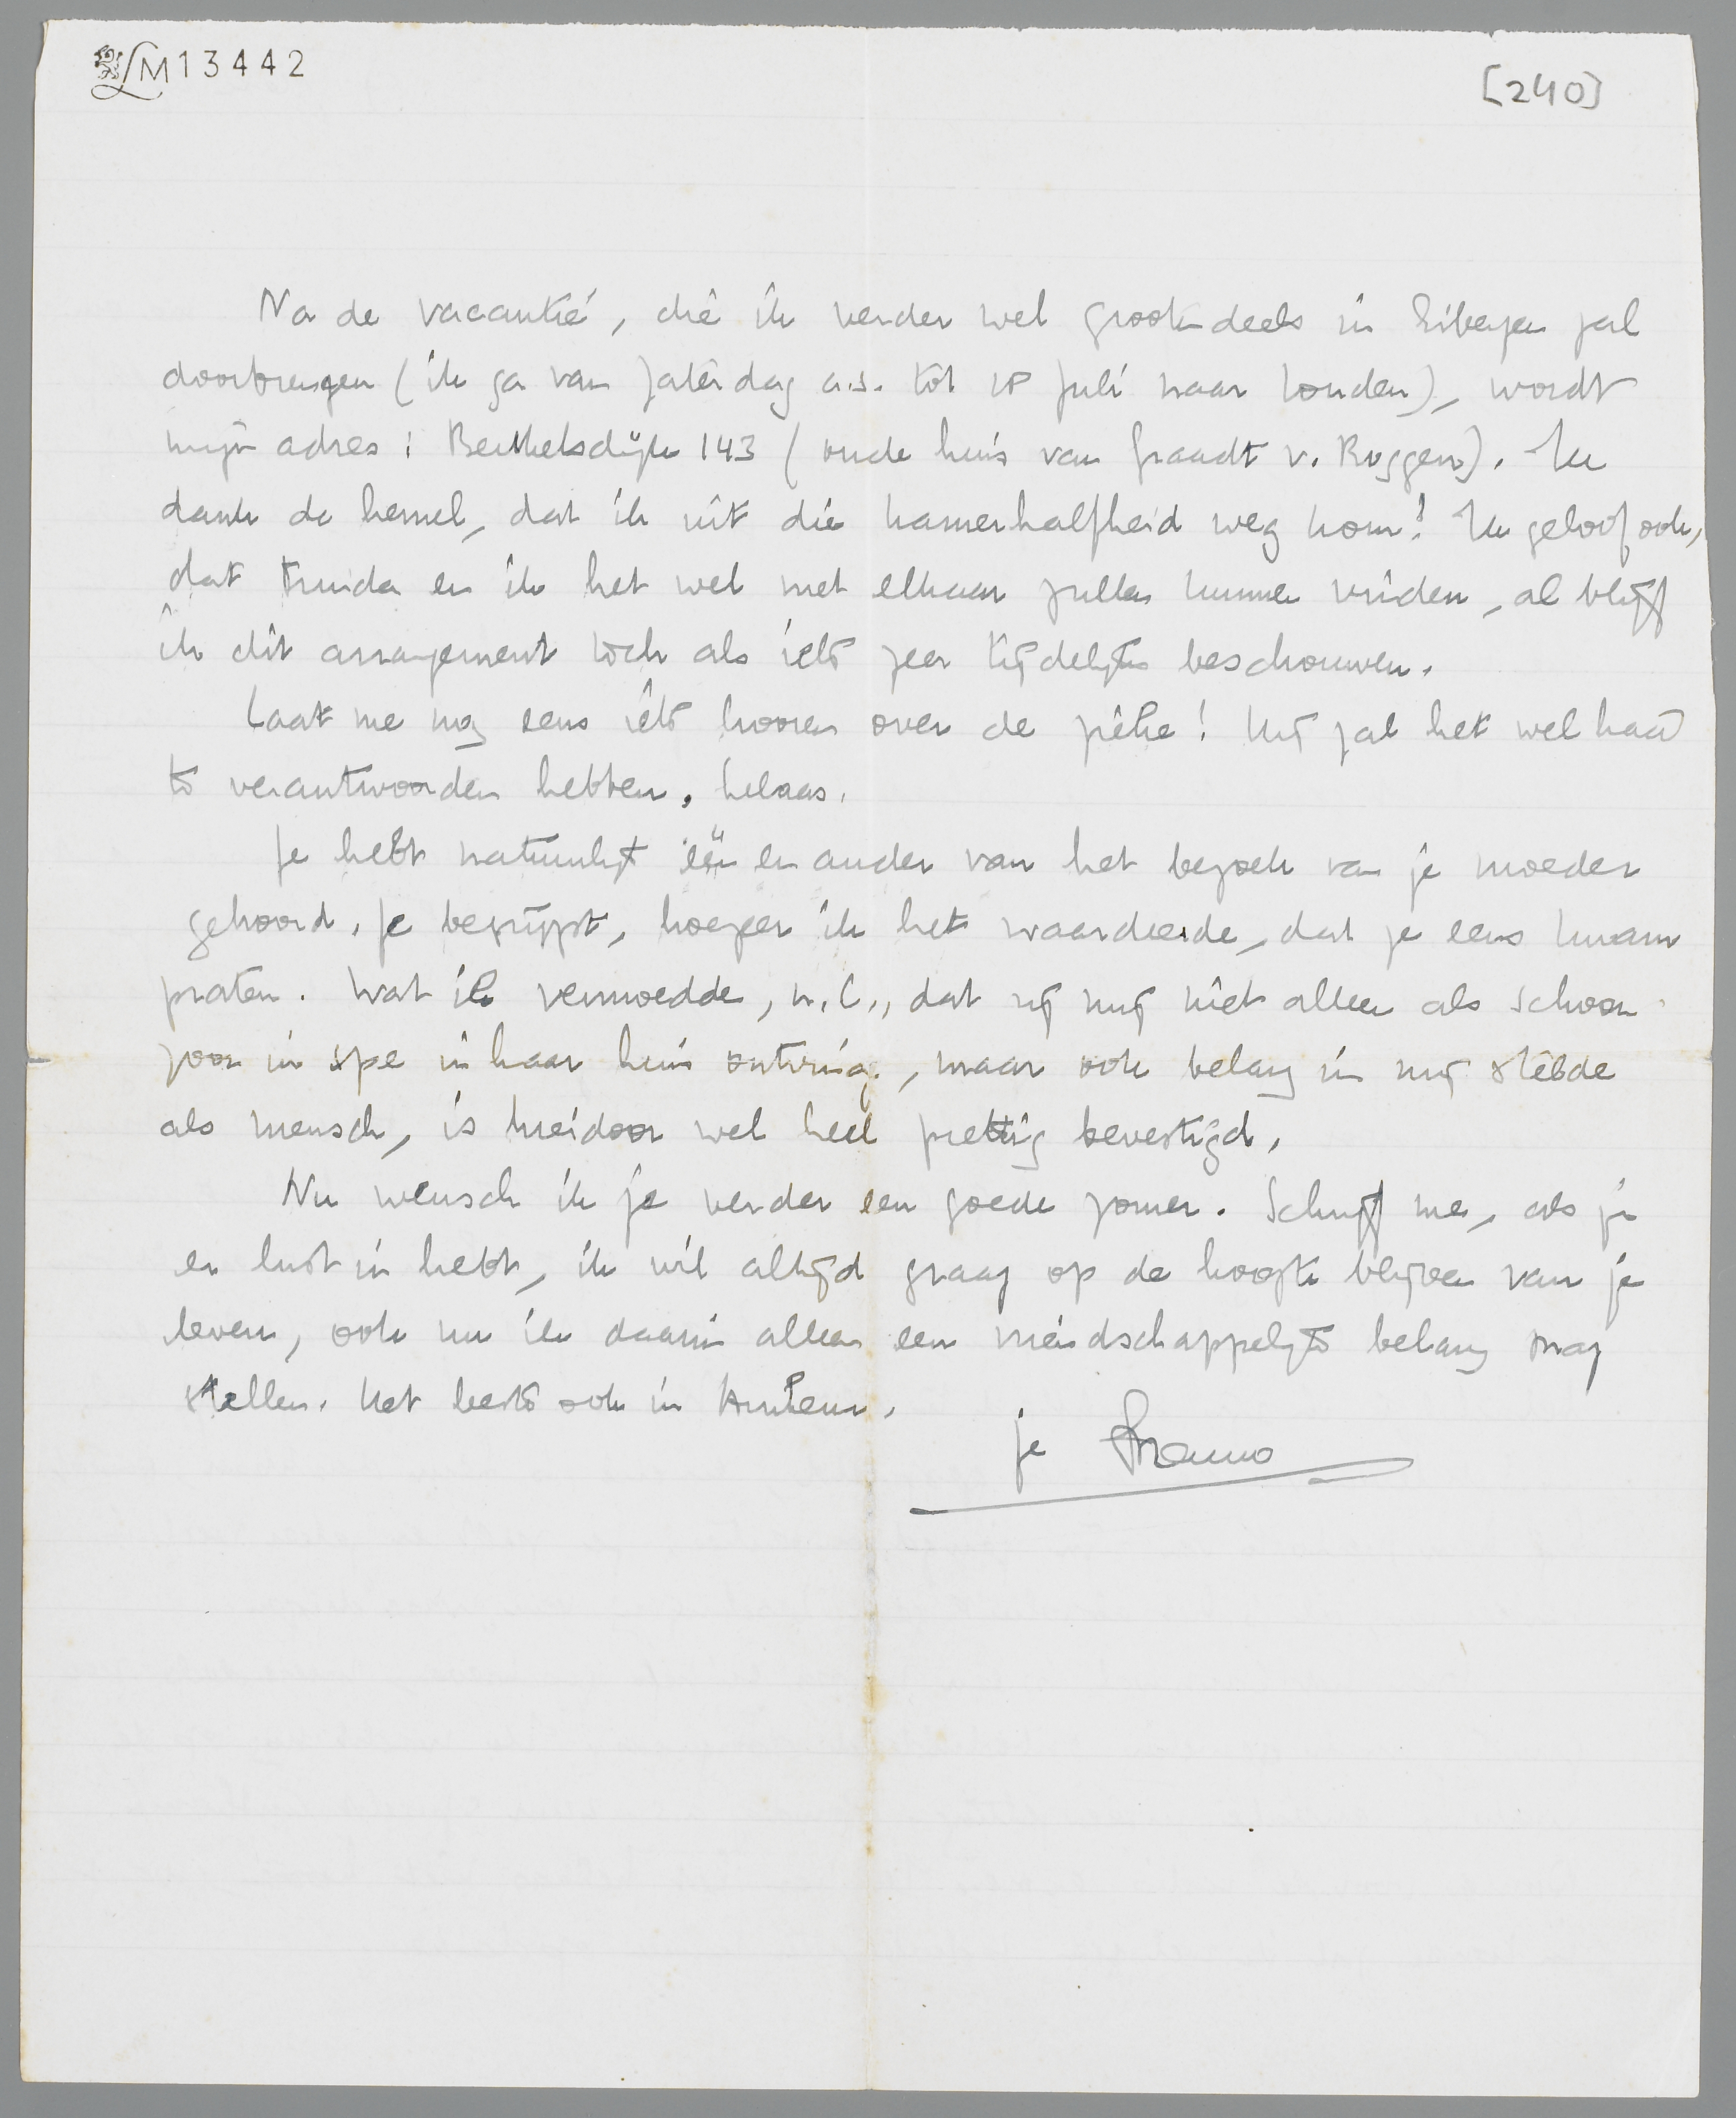 LM13442
[240]
Na de vacantie, die ik verder wel grootendeels in Eibergen zal
doorbrengen (ik ga van Zaterdag a.s. tot 18 Juli naar Londen), wordt
mijn adres: Beukelsdijk 143 (oude huis van Graadt v. Roggen). Ik
dank de hemel, dat ik uit die kamerhalfheid weg kom! Ik geloof ook,
dat Truida en ik het wel met elkaar zullen kunnen vinden, al blijf
ik dit arrangement toch als iets zeer tijdelijks beschouwen.
Laat me nog eens iets hooren over de zieke! Hij zal het wel hard
te verantwoorden hebben, helaas.
Je hebt natuurlijk één en ander van het bezoek van je moeder
gehoord. Je begrijpt, hoezeer ik het waardeerde, dat ze eens kwam
praten. Wat ik vermoedde, n.l., dat zij mij niet alleen als schoon-
zoon in spe in haar huis ontving, maar ook belang in mij stelde
als mensch, is hierdoor wel heel prettig bevestigd.
Nu wensch ik je verder een goede zomer. Schrijf me, als je
er lust in hebt, ik wil altijd graag op de hoogte blijven van je
leven, ook nu ik daarin alleen een vriendschappelijk belang mag
stellen. Het beste ook in Arnhem.
je Menno